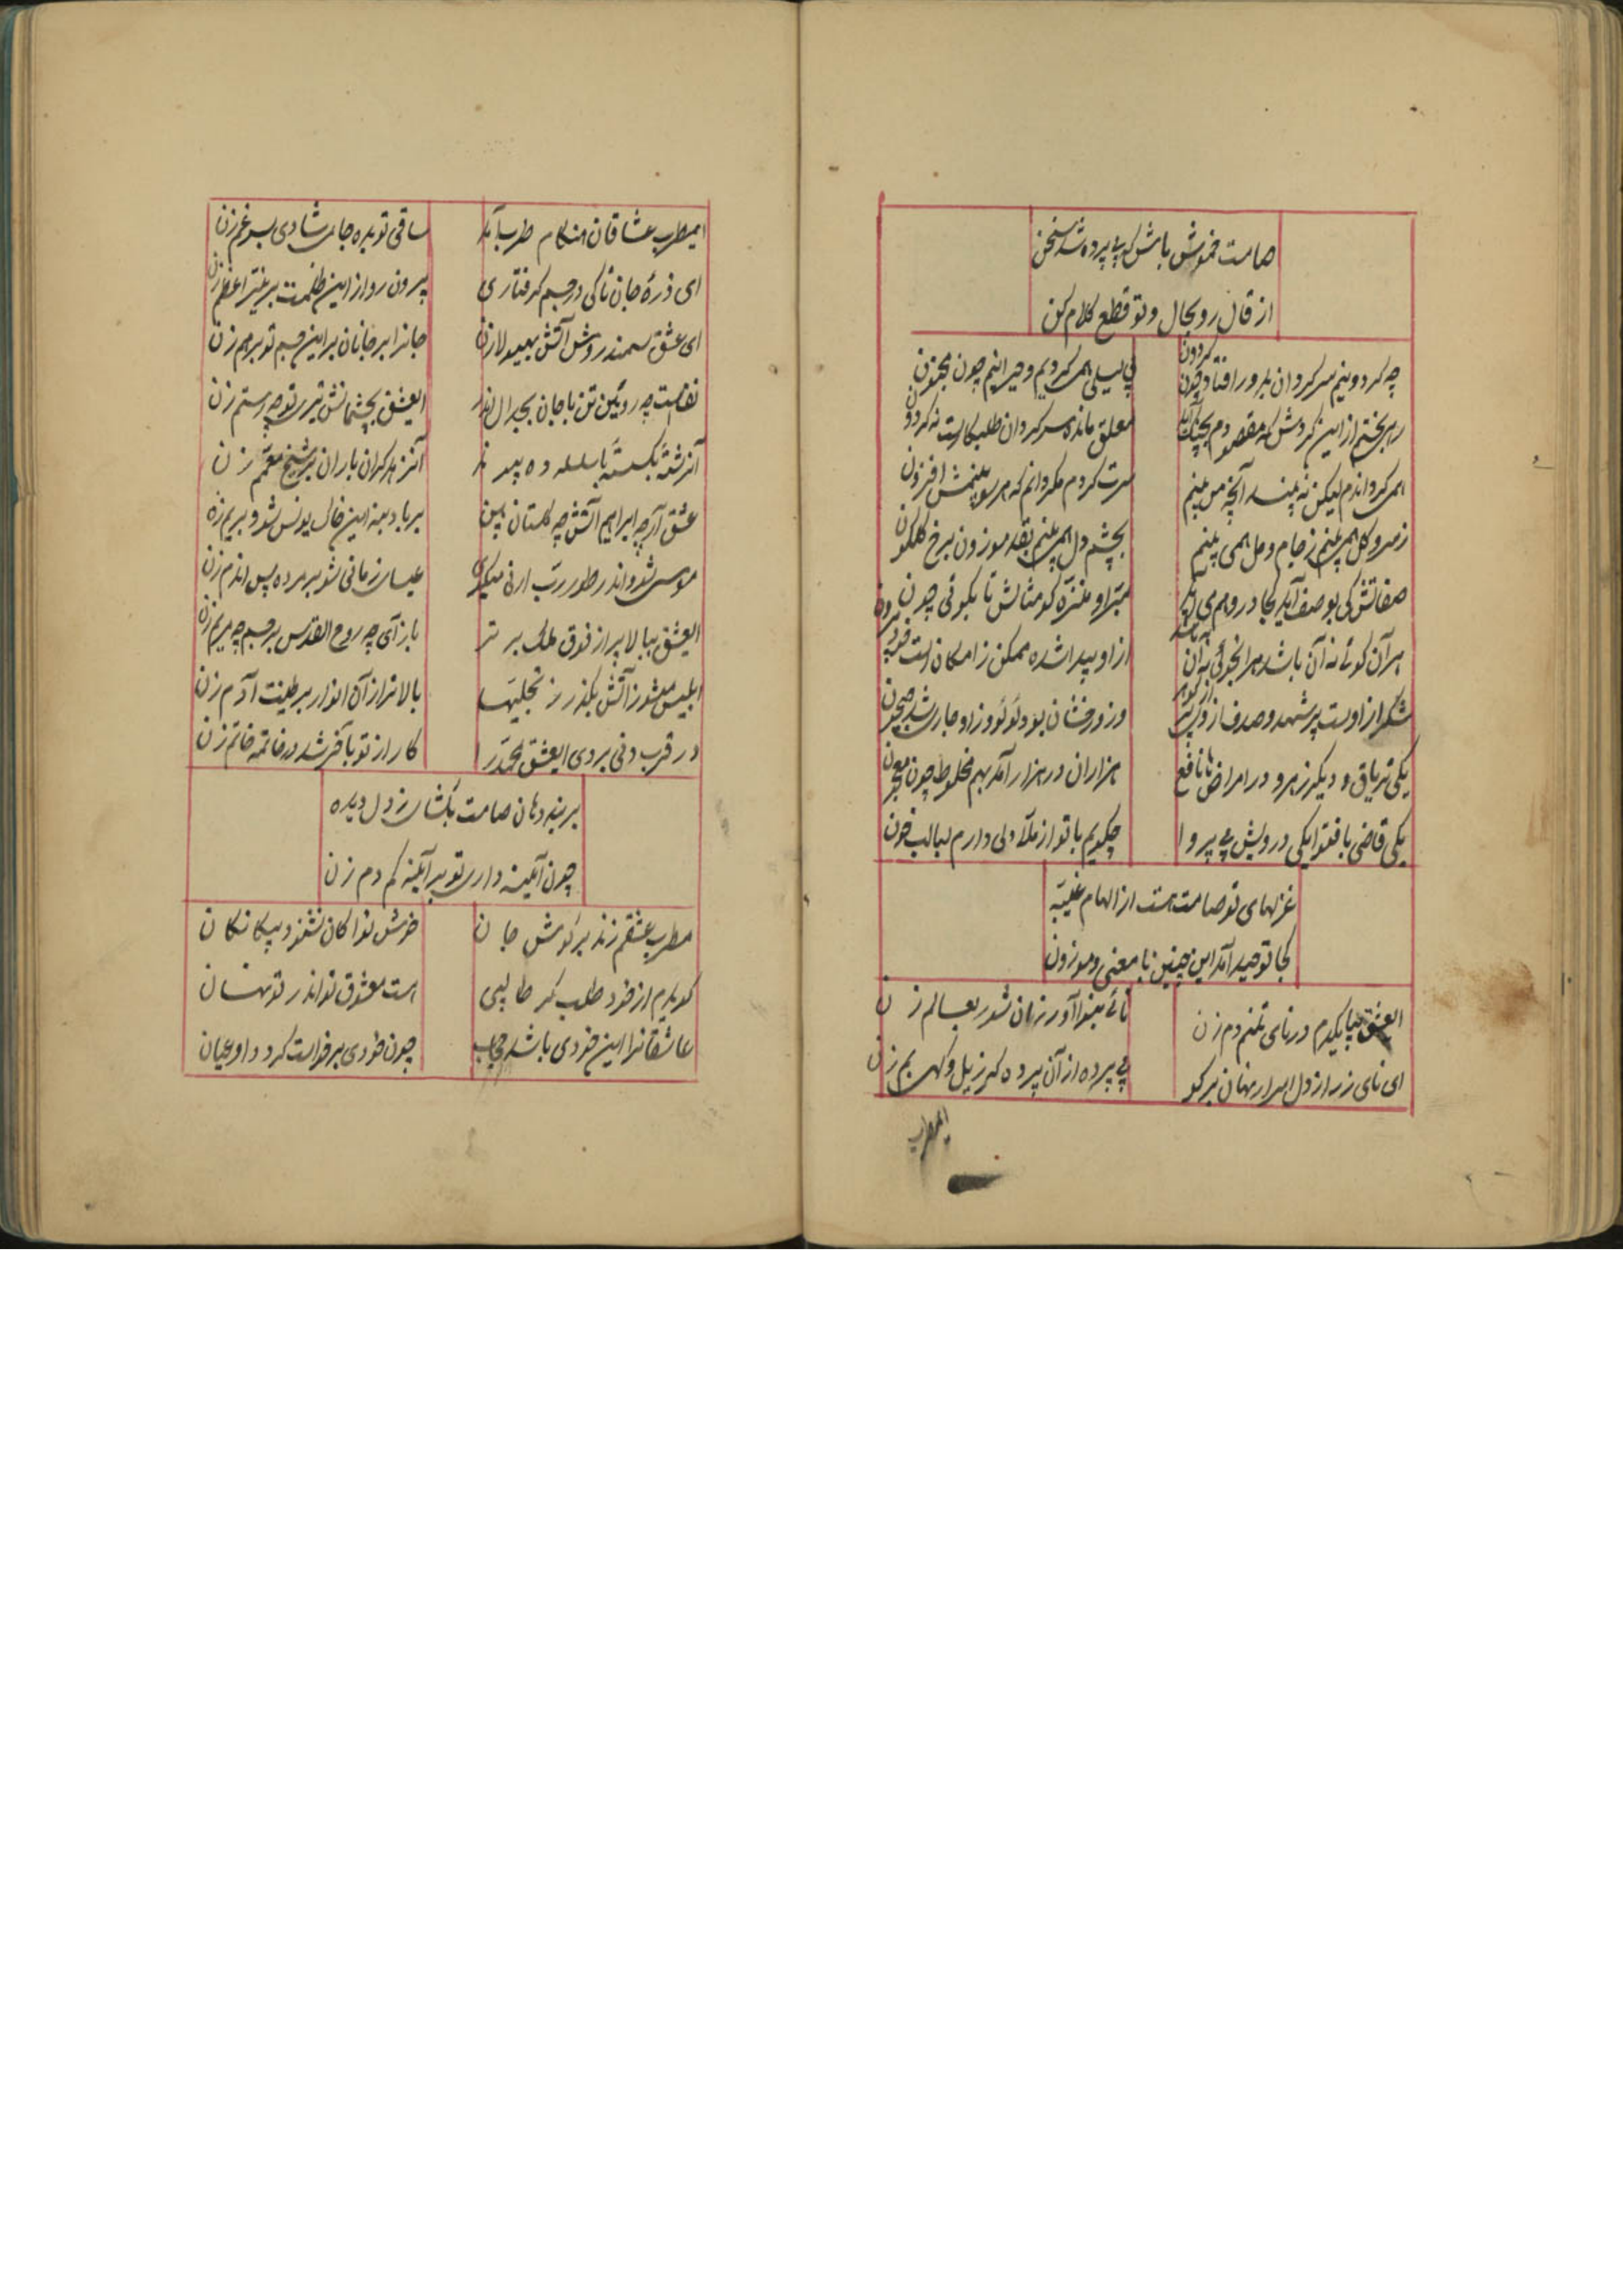 صامت خموش باش که بی پرده شد سخن
از قال رو بحال و تو قطع کلام کن
چه کردونیم سرکردان بدور افتاده چون کردون
پی لیلی همی کردیم و حیرانیم چون مجنون
از این کردش که مقصودم
معلق مانده سرکردان طلبکار است
همی کرد اندم لیکن نه بیند آنچه من بینم
بینمش افزون
ز سرو کل همی بینم ز جام و مل همی بینم
بچشم دل همی بینم بقد موزون برخ کلکون
صفاتش کی بوصف آید کجا در وهم می
مبرا و منزه کو مثالش تا بکوئی چون
هر آن کوئی نه آن باشد هر آنجوئی نه آن باشد
از او پیدا شده ممکن ز امکان است خود بیرون
شکر از اوست پر شهد و صدف از وی پر از کوهر
بود لؤلؤ و ز او جاری شد جیحون
یکی تریاق و دیکر زهر و در امراض ها نافع
هزاران در هزار آمد بهم مخلوط چون معجون
یکی قاضی با فتوا یکی درویش بی پروا
چکویم با تو از ملا دلی دارم لبالب خون
غزلهای تو صامت هست از الهام غیبیه
کجا توحید آمد این چنین با معنی و موزون
ایعشق بیا یکدم در نای تنم دم زن
نائی بنوا آور زان شور بعالم زن
ای نای ز راز دل اسرار نهان بر کو
بی پرده از آن پرده که زیل و کهی بم زن
ایمطرب
ایمطرب عشاقان هنکام طرب آمد
ساقی تو بده جامی شادی بسر غم زن
ای ذرهٔ جان تا کی در جسم کرفتاری
بیرون رو از این ظلمت بر نیر اعظم زن
ای عشق سمندروش آتش بهیولا زن
جانرا بر جانان بر این جسم تو برهم زن
نفس است چه رویین تن با جان بجدال اندر
ایعشق بچشمانش تیری تو چه رستم زن
بر شیخ معمم زن
عشق آر چه ابراهیم آتش چه کلستان بین
بر باد بده این خاک یونس شو و بر یم زن
موسی شو و اندر طور رب ارنی میکوی
عیسای زمانی شو بر مرده پس اندم زن
ایعشق ببالا پر از فوق ملک برتر
بازآی چه روح القدس بر جسم چه مریم زن
ابلیس مشو ز آتش بکذر ز تجلیها
بالاتر از آن انوار بر طینت آدم زن
در قرب دنی بردی ایعشق محمد را
کار از تو بآخر شد در خاتمه خاتم زن
بر بند دهان صامت بکشای ز دل دیده
چون آینه داری تو بر آینه کم دم زن
مطرب عشقم زند بر کوش جان
خوش نوا کان نشنود بیکانکان
کویدم از خود طلب کر طالبی
هست معشوق تو اندر تو نهان
عاشقانرا این خودی باشد حجاب
چون خودی برخواست کردد او عیان